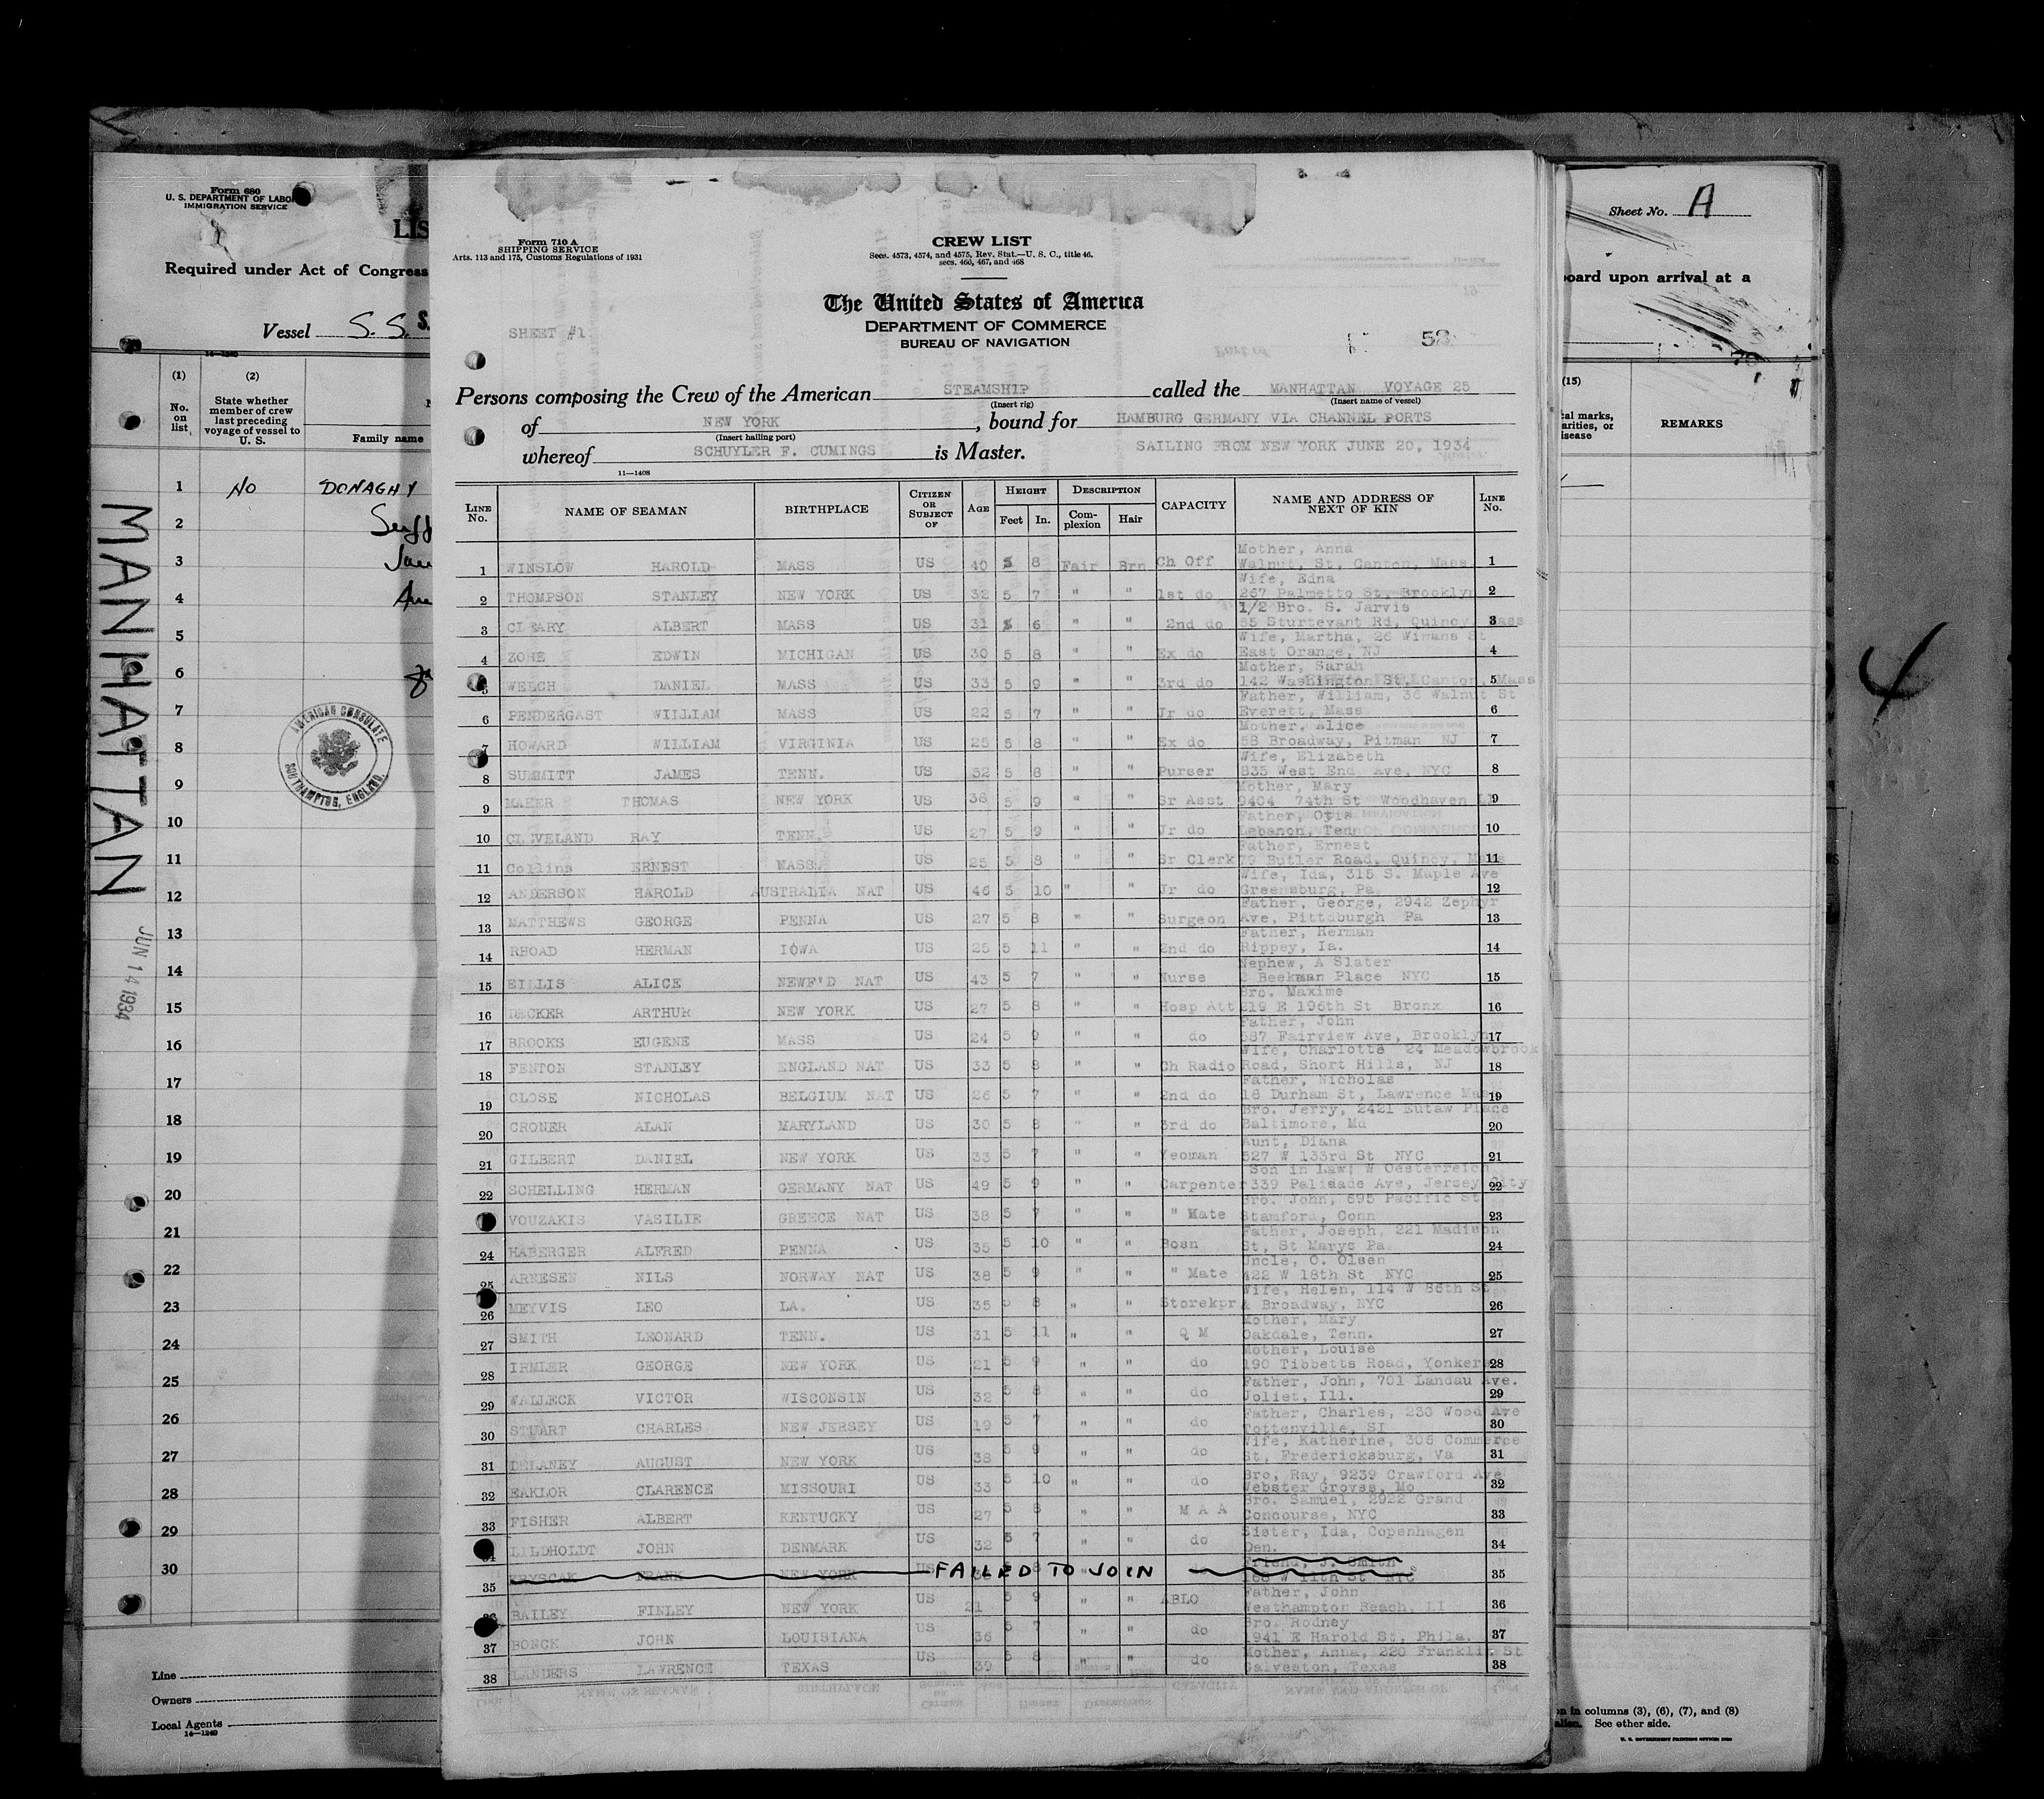 Form 680
U. S. DEPARTMENT OF LABO
IMMIGRATION SERVICE
LIS
Required under Act of Congress
Vessel S. S. S.
14—1240
(1) (2)
No. on list
State whether member of crew last preceding voyage of vessel to U. S.
Family name
1 NO DONAGHY
2
3
4
5
6
7
8
9
10
11
12
13
14
15
16
17
18
19
20
21
22
23
24
25
26
27
28
29
30
MANHATTAN
JUN 14 1934
AMERICAN CONSULATE
SOUTHAMPTON, ENGLAND
Line
Owners
Local Agents
14—1240
Form 710 A
SHIPPING SERVICE
Arts. 113 and 175, Customs Regulations of 1931
CREW LIST
Secs. 4573, 4574, and 4575, Rev. Stat.—U. S. C., title 46,
secs. 466, 467, and 468
The United States of America
DEPARTMENT OF COMMERCE
BUREAU OF NAVIGATION
SHEET #1
58
Persons composing the Crew of the American STEAMSHIP called the MANHATTAN VOYAGE 25
(Insert rig) (Insert name of vessel)
of NEW YORK, bound for HAMBURG GERMANY VIA CHANNEL PORTS
(Insert hailing port)
whereof SCHUYLER F. CUMINGS is Master. SAILING FROM NEW YORK JUNE 20, 1934
11—1408
LINE No. NAME OF SEAMAN BIRTHPLACE CITIZEN OR SUBJECT OF AGE HEIGHT Feet In. DESCRIPTION Complexion Hair CAPACITY NAME AND ADDRESS OF NEXT OF KIN LINE No.
Mother, Anna
1 WINSLOW HAROLD MASS US 40 5 8 Fair Brn Ch Off Walnut, St, Canton, Mass 1
Wife, Edna
2 THOMPSON STANLEY NEW YORK US 32 5 7 " " 1st do 267 Palmetto St, Brooklyn 2
1/2 Bro. S. Jarvis
3 CLEARY ALBERT MASS US 31 5 6 " " 2nd do 55 Sturtevant Rd, Quincy, Mass 3
Wife, Martha, 26 Winans St
4 ZOHE EDWIN MICHIGAN US 30 5 8 " " Ex do East Orange, NJ 4
Mother, Sarah
5 WELCH DANIEL MASS US 33 5 9 " " 3rd do 142 Washington St, Canton, Mass 5
Father, William, 36 Walnut St
6 PENDERGAST WILLIAM MASS US 22 5 7 " " Jr do Everett, Mass 6
Mother, Alice
7 HOWARD WILLIAM VIRGINIA US 25 5 8 " " Ex do 58 Broadway, Pitman NJ 7
Wife, Elizabeth
8 SUMMITT JAMES TENN. US 32 5 8 " " Purser 835 West End Ave, NYC 8
Mother, Mary
9 MAHER THOMAS NEW YORK US 38 5 9 " " Sr Asst 9404 74th St Woodhaven LI 9
Father, Otis
10 CLEVELAND RAY TENN. US 27 5 9 " " Jr do Lebanon, Tenn 10
Father, Ernest
11 Collins ERNEST MASS. US 25 5 8 " " Sr Clerk 79 Butler Road, Quincy, Mass 11
Wife, Ida, 315 S. Maple Ave
12 ANDERSON HAROLD AUSTRALIA NAT US 46 5 10 " " Jr do Greensburg, Pa 12
Father, George, 2942 Zephyr
13 MATTHEWS GEORGE PENNA US 27 5 8 " " Surgeon Ave, Pittsburgh Pa 13
Father, Herman
14 RHOAD HERMAN IOWA US 25 5 11 " " 2nd do Rippey, Ia. 14
Nephew, A Slater
15 EILLIS ALICE NEWF'D NAT US 43 5 7 " " Nurse Beekman Place NYC 15
Bro. Maxime
16 DECKER ARTHUR NEW YORK US 27 5 8 " " Hosp Att 219 E 196th St Bronx 16
Father, John
17 BROOKS EUGENE MASS US 24 5 9 " " do 587 Fairview Ave, Brooklyn 17
Wife, Charlotte 24 Meadowbrook
18 FENTON STANLEY ENGLAND NAT US 33 5 8 " " Ch Radio Road, Short Hills, NJ 18
Father, Nicholas
19 CLOSE NICHOLAS BELGIUM NAT US 26 5 7 " " 2nd do 18 Durham St, Lawrence Mass 19
Bro. Jerry, 2421 Eutaw Place
20 CRONER ALAN MARYLAND US 30 5 8 " " 3rd do Baltimore, Md 20
Aunt, Diana
21 GILBERT DANIEL NEW YORK US 33 5 7 " " Yeoman 527 W 133rd St NYC 21
Son in Law, W Oesterreich
22 SCHELLING HERMAN GERMANY NAT US 49 5 9 " " Carpenter 339 Palisade Ave, Jersey City 22
Bro. John, 695 Pacific St
VOUZAKIS VASILIE GREECE NAT US 38 5 7 " " " Mate Stamford, Conn 23
Father, Joseph, 221 Madison
24 HABERGER ALFRED PENNA US 35 5 10 " " Bosn St, St Marys Pa. 24
Uncle, O. Olsen
25 ARNESEN NILS NORWAY NAT US 38 5 9 " " " Mate 422 W 18th St NYC 25
Wife, Helen, 114 W 86th St
26 MEYVIS LEO LA. US 35 5 8 " " Storekpr & Broadway, NYC 26
Mother, Mary
27 SMITH LEONARD TENN. US 31 5 11 " " Q M Oakdale, Tenn. 27
Mother, Louise
28 IRMLER GEORGE NEW YORK US 21 5 9 " " do 190 Tibbetts Road, Yonkers 28
Father, John, 701 Landau Ave.
29 WALLECK VICTOR WISCONSIN US 32 5 8 " " do Joliet, Ill. 29
Father, Charles, 230 Wood Ave
30 STUART CHARLES NEW JERSEY US 19 5 7 " " do Tottenville, SI 30
Wife, Katherine, 306 Commerce
31 DELANEY AUGUST NEW YORK US 38 5 9 " " do St, Fredericksburg, Va 31
Bro, Ray, 9239 Crawford Ave
32 EAKLOR CLARENCE MISSOURI US 33 5 10 " " do Webster Groves, Mo 32
Bro. Samuel, 2922 Grand
33 FISHER ALBERT KENTUCKY US 27 5 8 " " M A A Concourse, NYC 33
Sister, Ida, Copenhagen
LILDHOLDT JOHN DENMARK US 32 5 7 " " do Den. 34
Friend, J. Smith
35 KRYSCAK FRANK NEW YORK US FAILED TO JOIN 168 W 11th St NYC 35
Father, John
36 BAILEY FINLEY NEW YORK US 21 5 9 " " ABLO Westhampton Beach, LI 36
Bro. Rodney
37 BONCK JOHN LOUISIANA US 36 5 7 " " do 1941 E Harold St, Phila. 37
Mother, Anna, 220 Franklin St
38 LANDERS LAWRENCE TEXAS US 39 5 8 " " do Galveston, Texas 38
Sheet No. A
board upon arrival at a
(15)
al marks,
arities, or
isease
REMARKS
4
on in columns (3), (6), (7), and (8)
alien. See other side.
U. S. GOVERNMENT PRINTING OFFICE